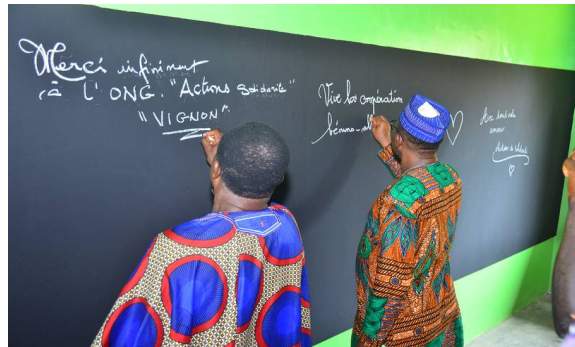 Merci infiniment
à l'ONG. "Actions solidarité"
"VIGNON".
Vive la coopération
bénino-all